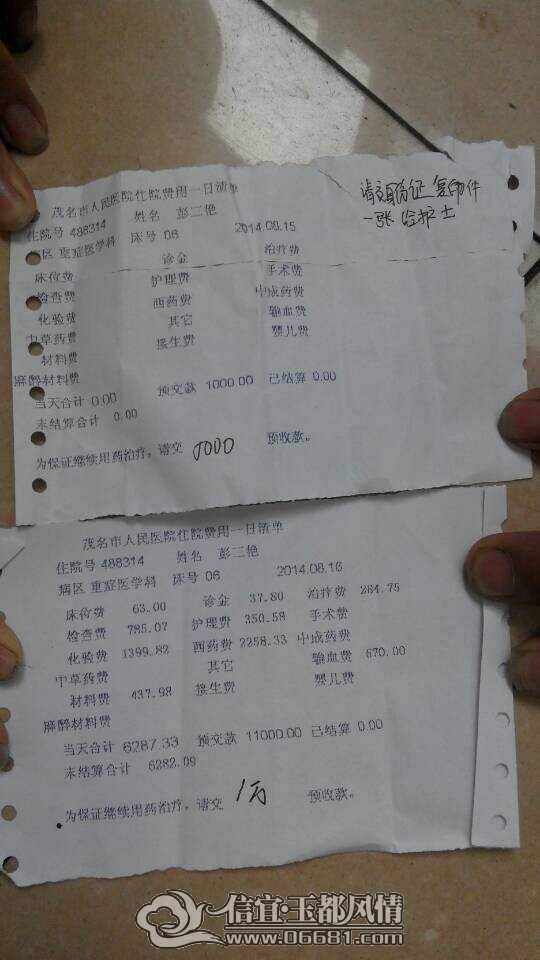 茂名市人民医院住院费用一日清单
请交身份证复印件
一张给护士
住院号 488314 姓名 彭二艳 2014.08.15
病区 重症医学科 床号 06
床位费 诊金 治疗费
检查费 护理费 手术费
化验费 西药费 中成药费
中草药费 其它 输血费
材料费 接生费 婴儿费
麻醉材料费
当天合计 0.00 预交款 1000.00 已结算 0.00
未结算合计 0.00
为保证继续用药治疗，请交 预收款。
茂名市人民医院住院费用一日清单
住院号 488314 姓名 彭二艳
病区 重症医学科 床号 06 2014.08.16
床位费 63.00 诊金 37.80 治疗费 264.75
检查费 785.07 护理费 350.58 手术费
化验费 1399.82 西药费 2258.33 中成药费
中草药费 其它 输血费 670.00
材料费 437.98 接生费 婴儿费
麻醉材料费
当天合计 6287.33 预交款 11000.00 已结算 0.00
未结算合计 6282.09
为保证继续用药治疗，请交 1万 预收款。
信宜·玉都风情
www.06681.com